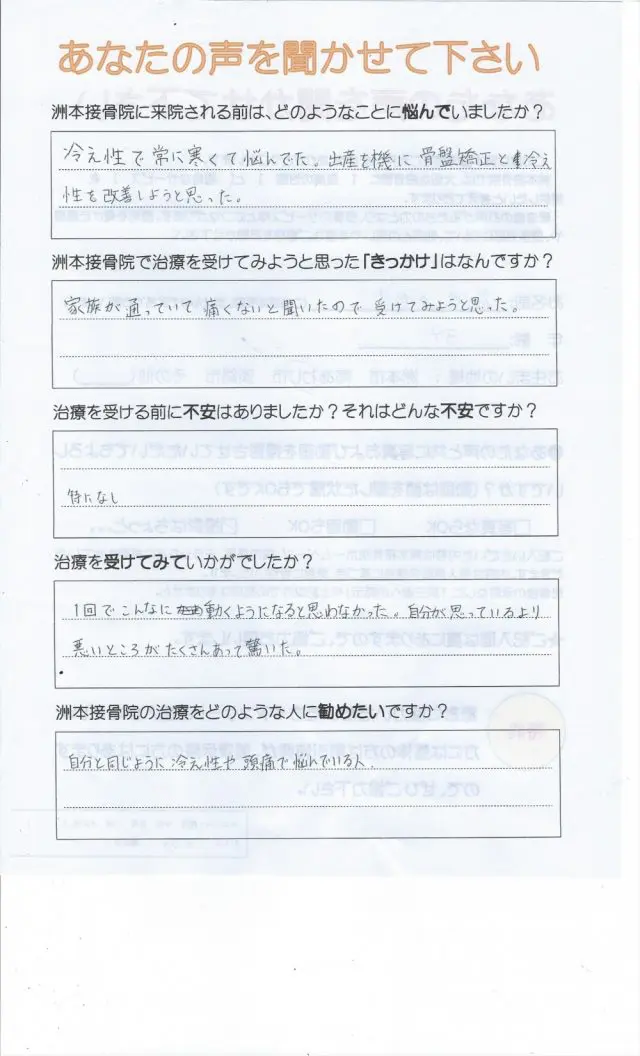 あなたの声を聞かせて下さい
洲本接骨院に来院される前は、どのようなことに悩んでいましたか？
冷え性で常に寒くて悩んでた。出産を機に骨盤矯正と冷え
性を改善しようと思った。
洲本接骨院で治療を受けてみようと思った「きっかけ」はなんですか？
家族が通っていて痛くないと聞いたので受けてみようと思った。
治療を受ける前に不安はありましたか？それはどんな不安ですか？
特になし
治療を受けてみていかがでしたか？
1回でこんなに動くようになると思わなかった。自分が思っているより
悪いところがたくさんあって驚いた。
洲本接骨院の治療をどのような人に勧めたいですか？
自分と同じように冷え性や頭痛で悩んでいる人.